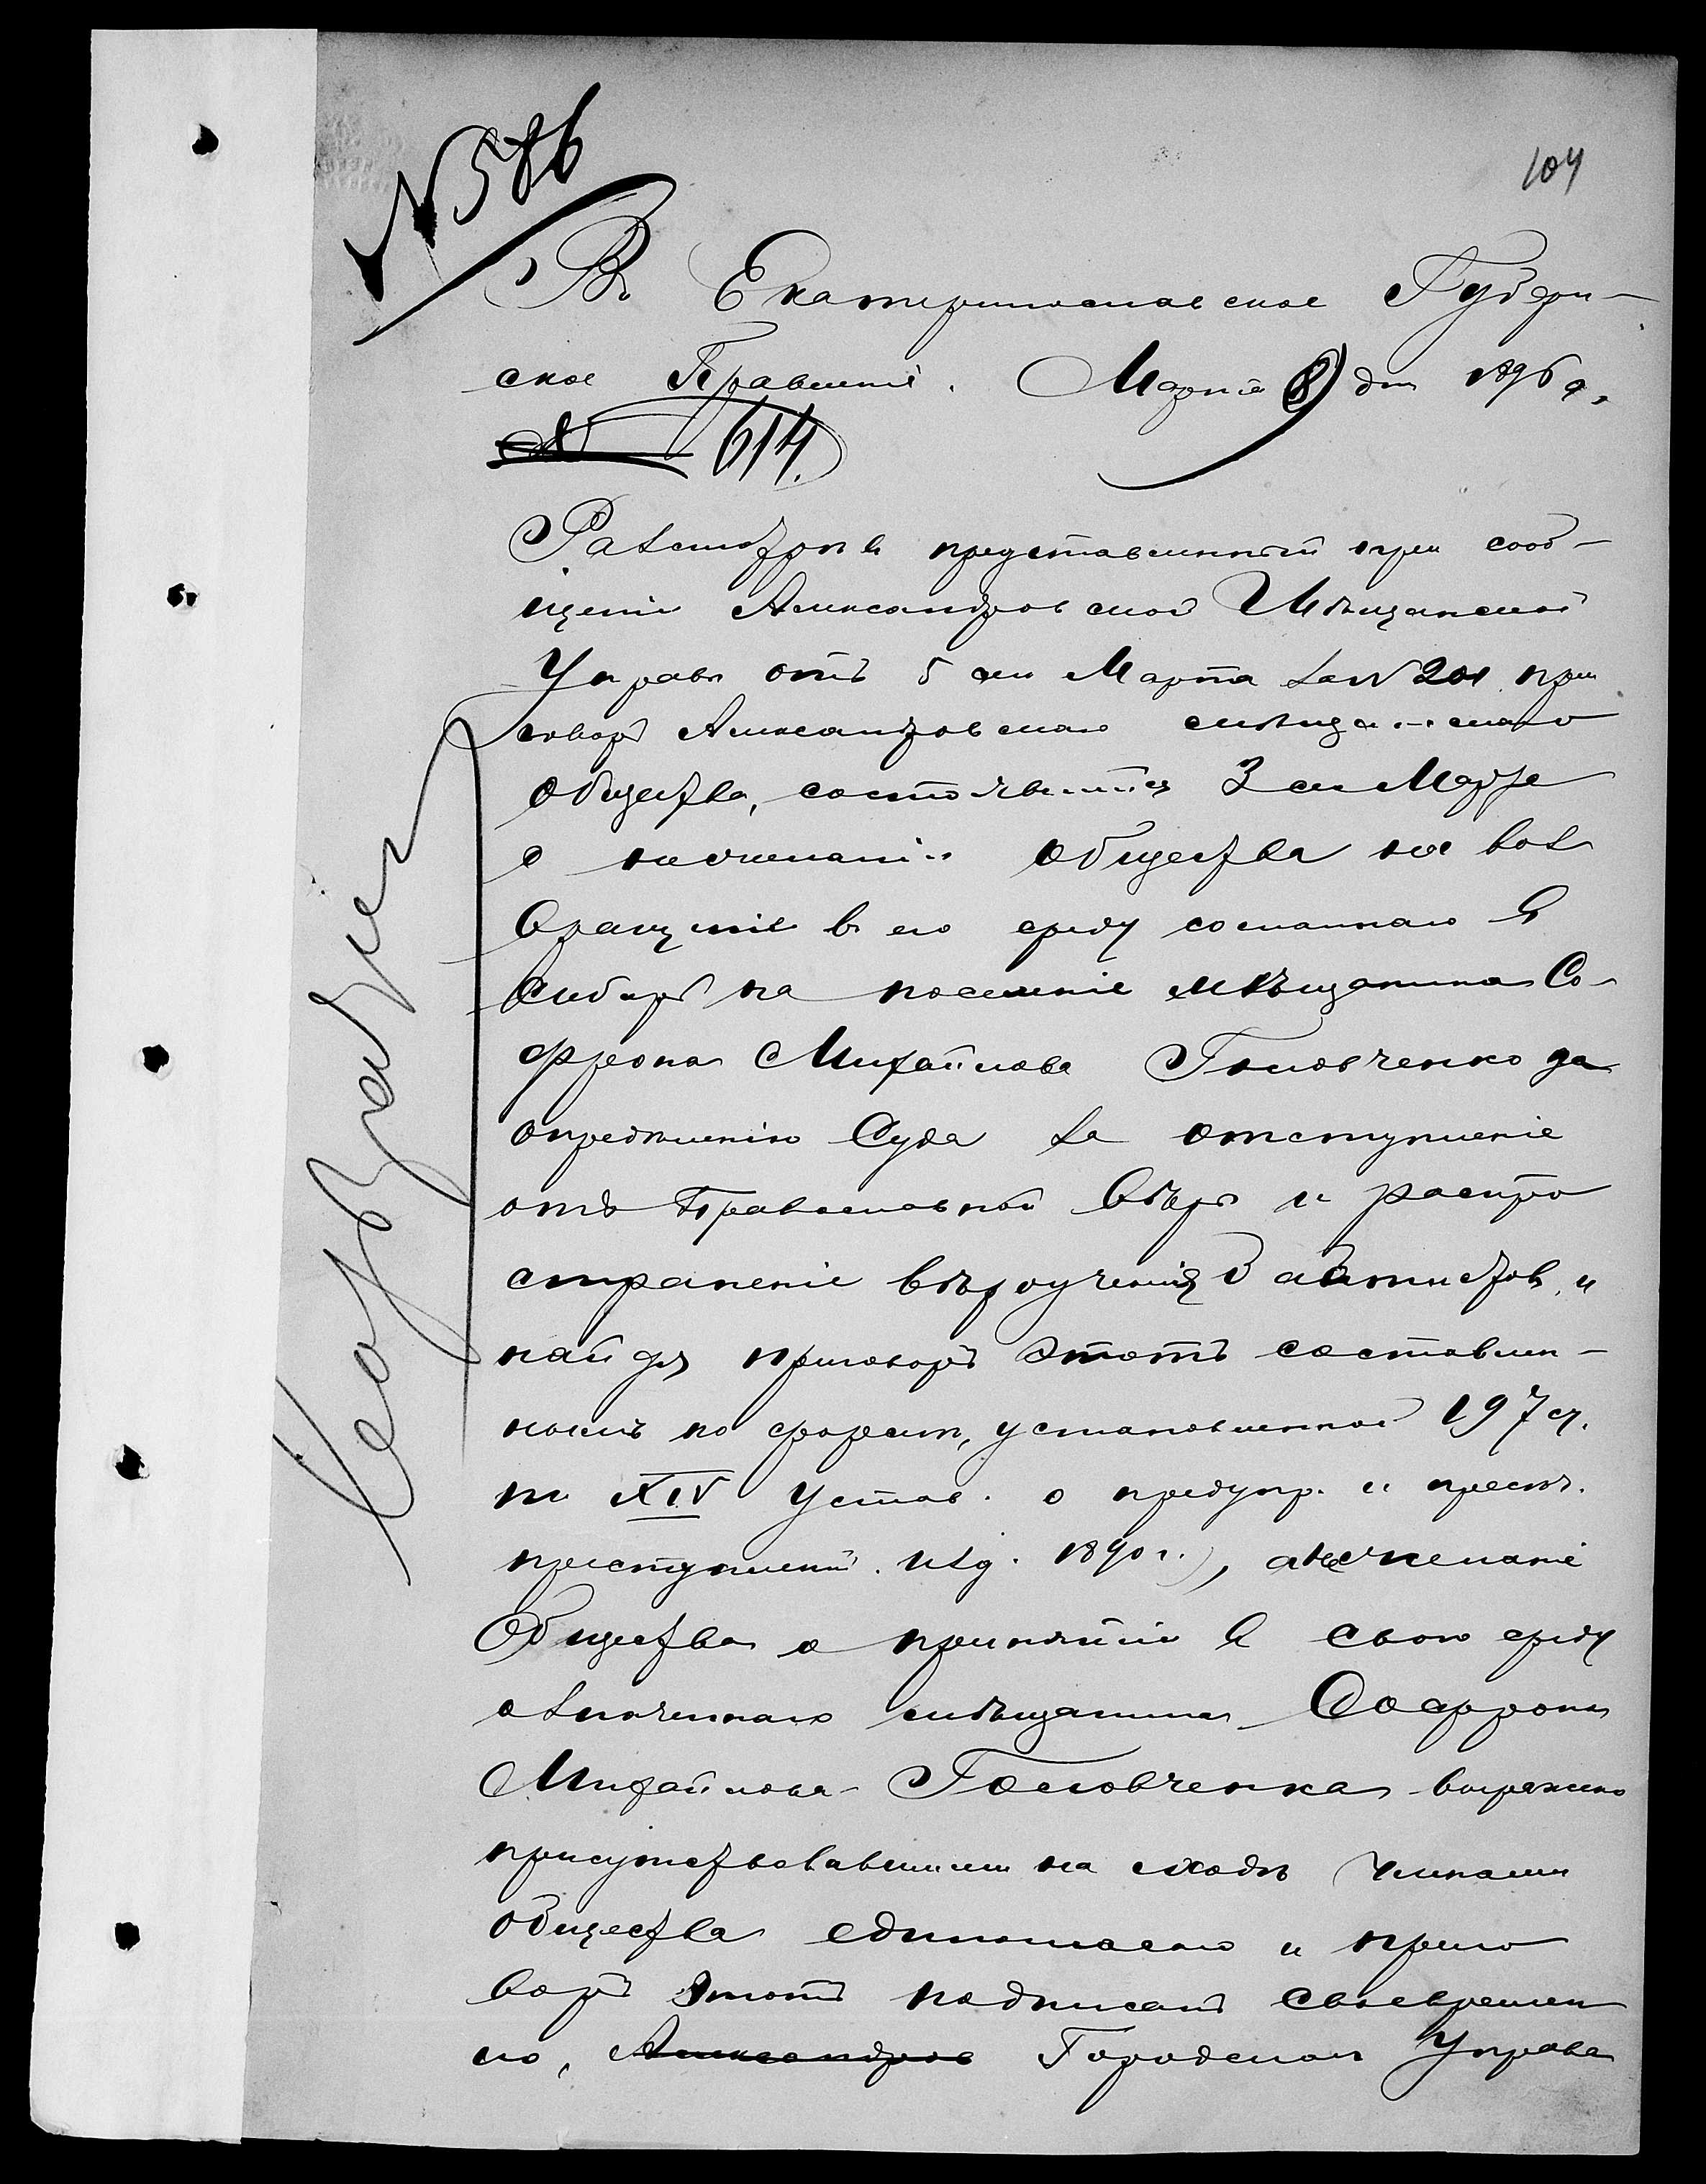 № 586
104
Въ Екатеринославское Губерн-
ское Правленіе. Марта 8 дня 1896 г.
№ 614.
Разсмотрѣвъ представленный при сооб-
щеніи Александровской Мѣщанской
Управы отъ 5 сего Марта за № 201 при
говоръ Александровскаго мѣщанскаго
Общества, состоявшійся 3 сего Марта
о нежеланіи Общества на воз
вращеніе въ его среду сосланнаго въ
Сибирь на поселеніе мѣщанина Со-
фрона Михайлова Головченко
опредѣленію Суда за отступленіе
отъ Православной Вѣры и распро
страненіе вѣроученія Баптистовъ, и
найдя приговоръ этотъ составлен-
нымъ по формѣ, установленной 197 ст.
т. XIV Устав. о предупр. и пресѣч.
преступленій. изд. 1890 г.), нежеланіе
Общества о принятіи въ свою среду
означеннаго мѣщанина Софрона
Михайлова Головченка выражено
присутствовавшими на сходѣ членами
общества единогласно и приго
воръ этотъ подписанъ своевремен
но, Александров Городская Управа